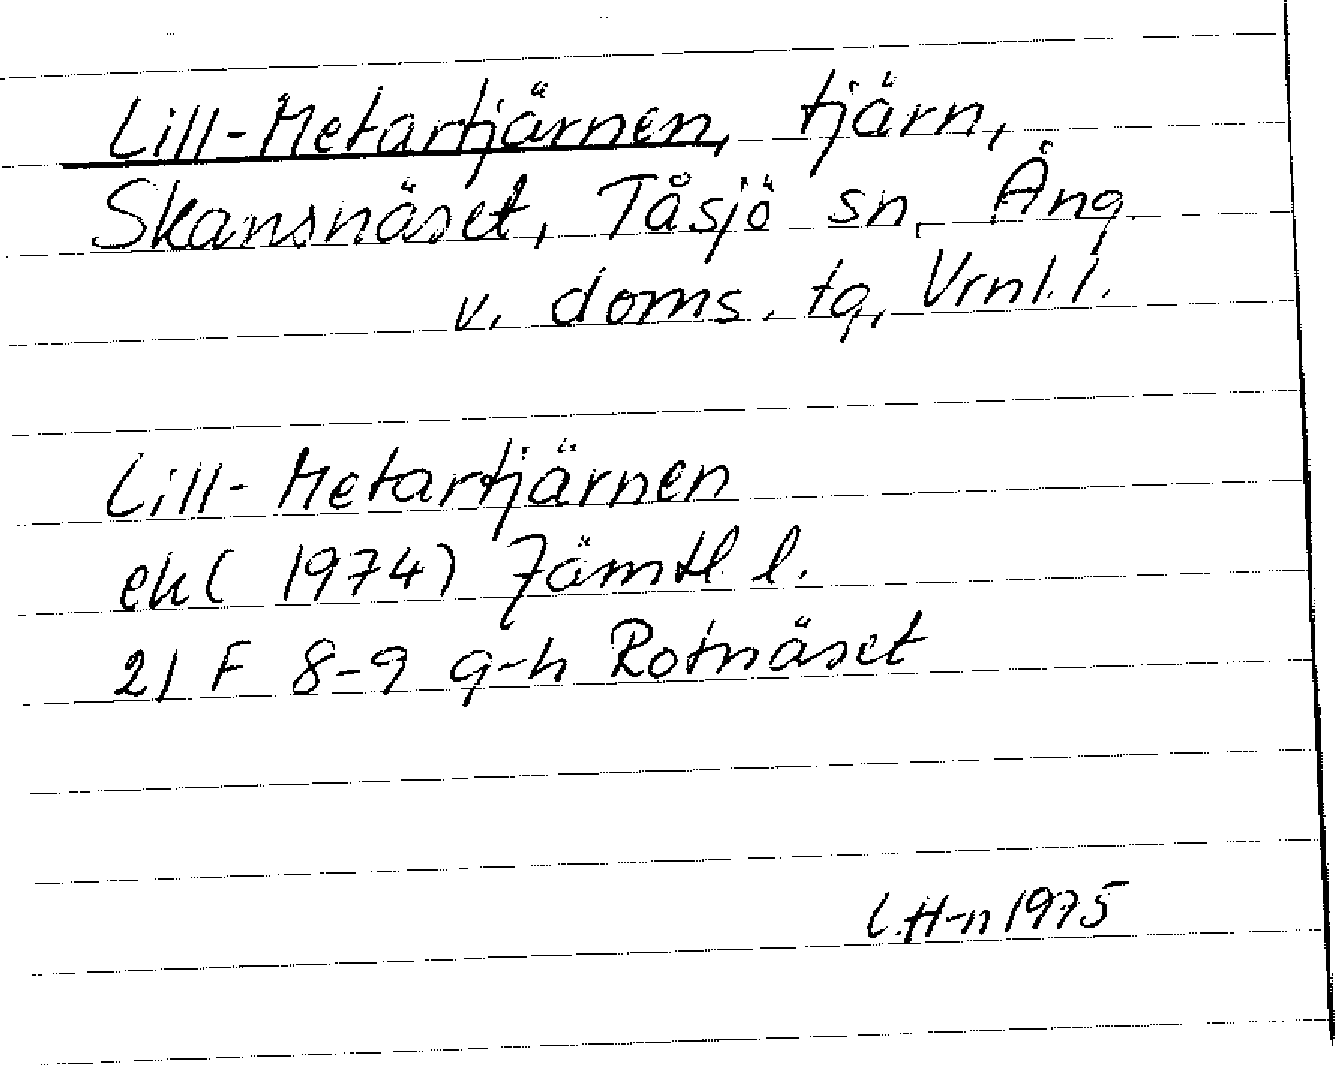 Lill-Metartjärnen, tjärn,
Skansnäset, Tåsjö sn, Äng.
v. doms. tg, Vrnl. l.
Lill-Metartjärnen
ek ( 1974) Jämtl l.
21 F 8-9 g-h Rotnäset
L. H-n 1975